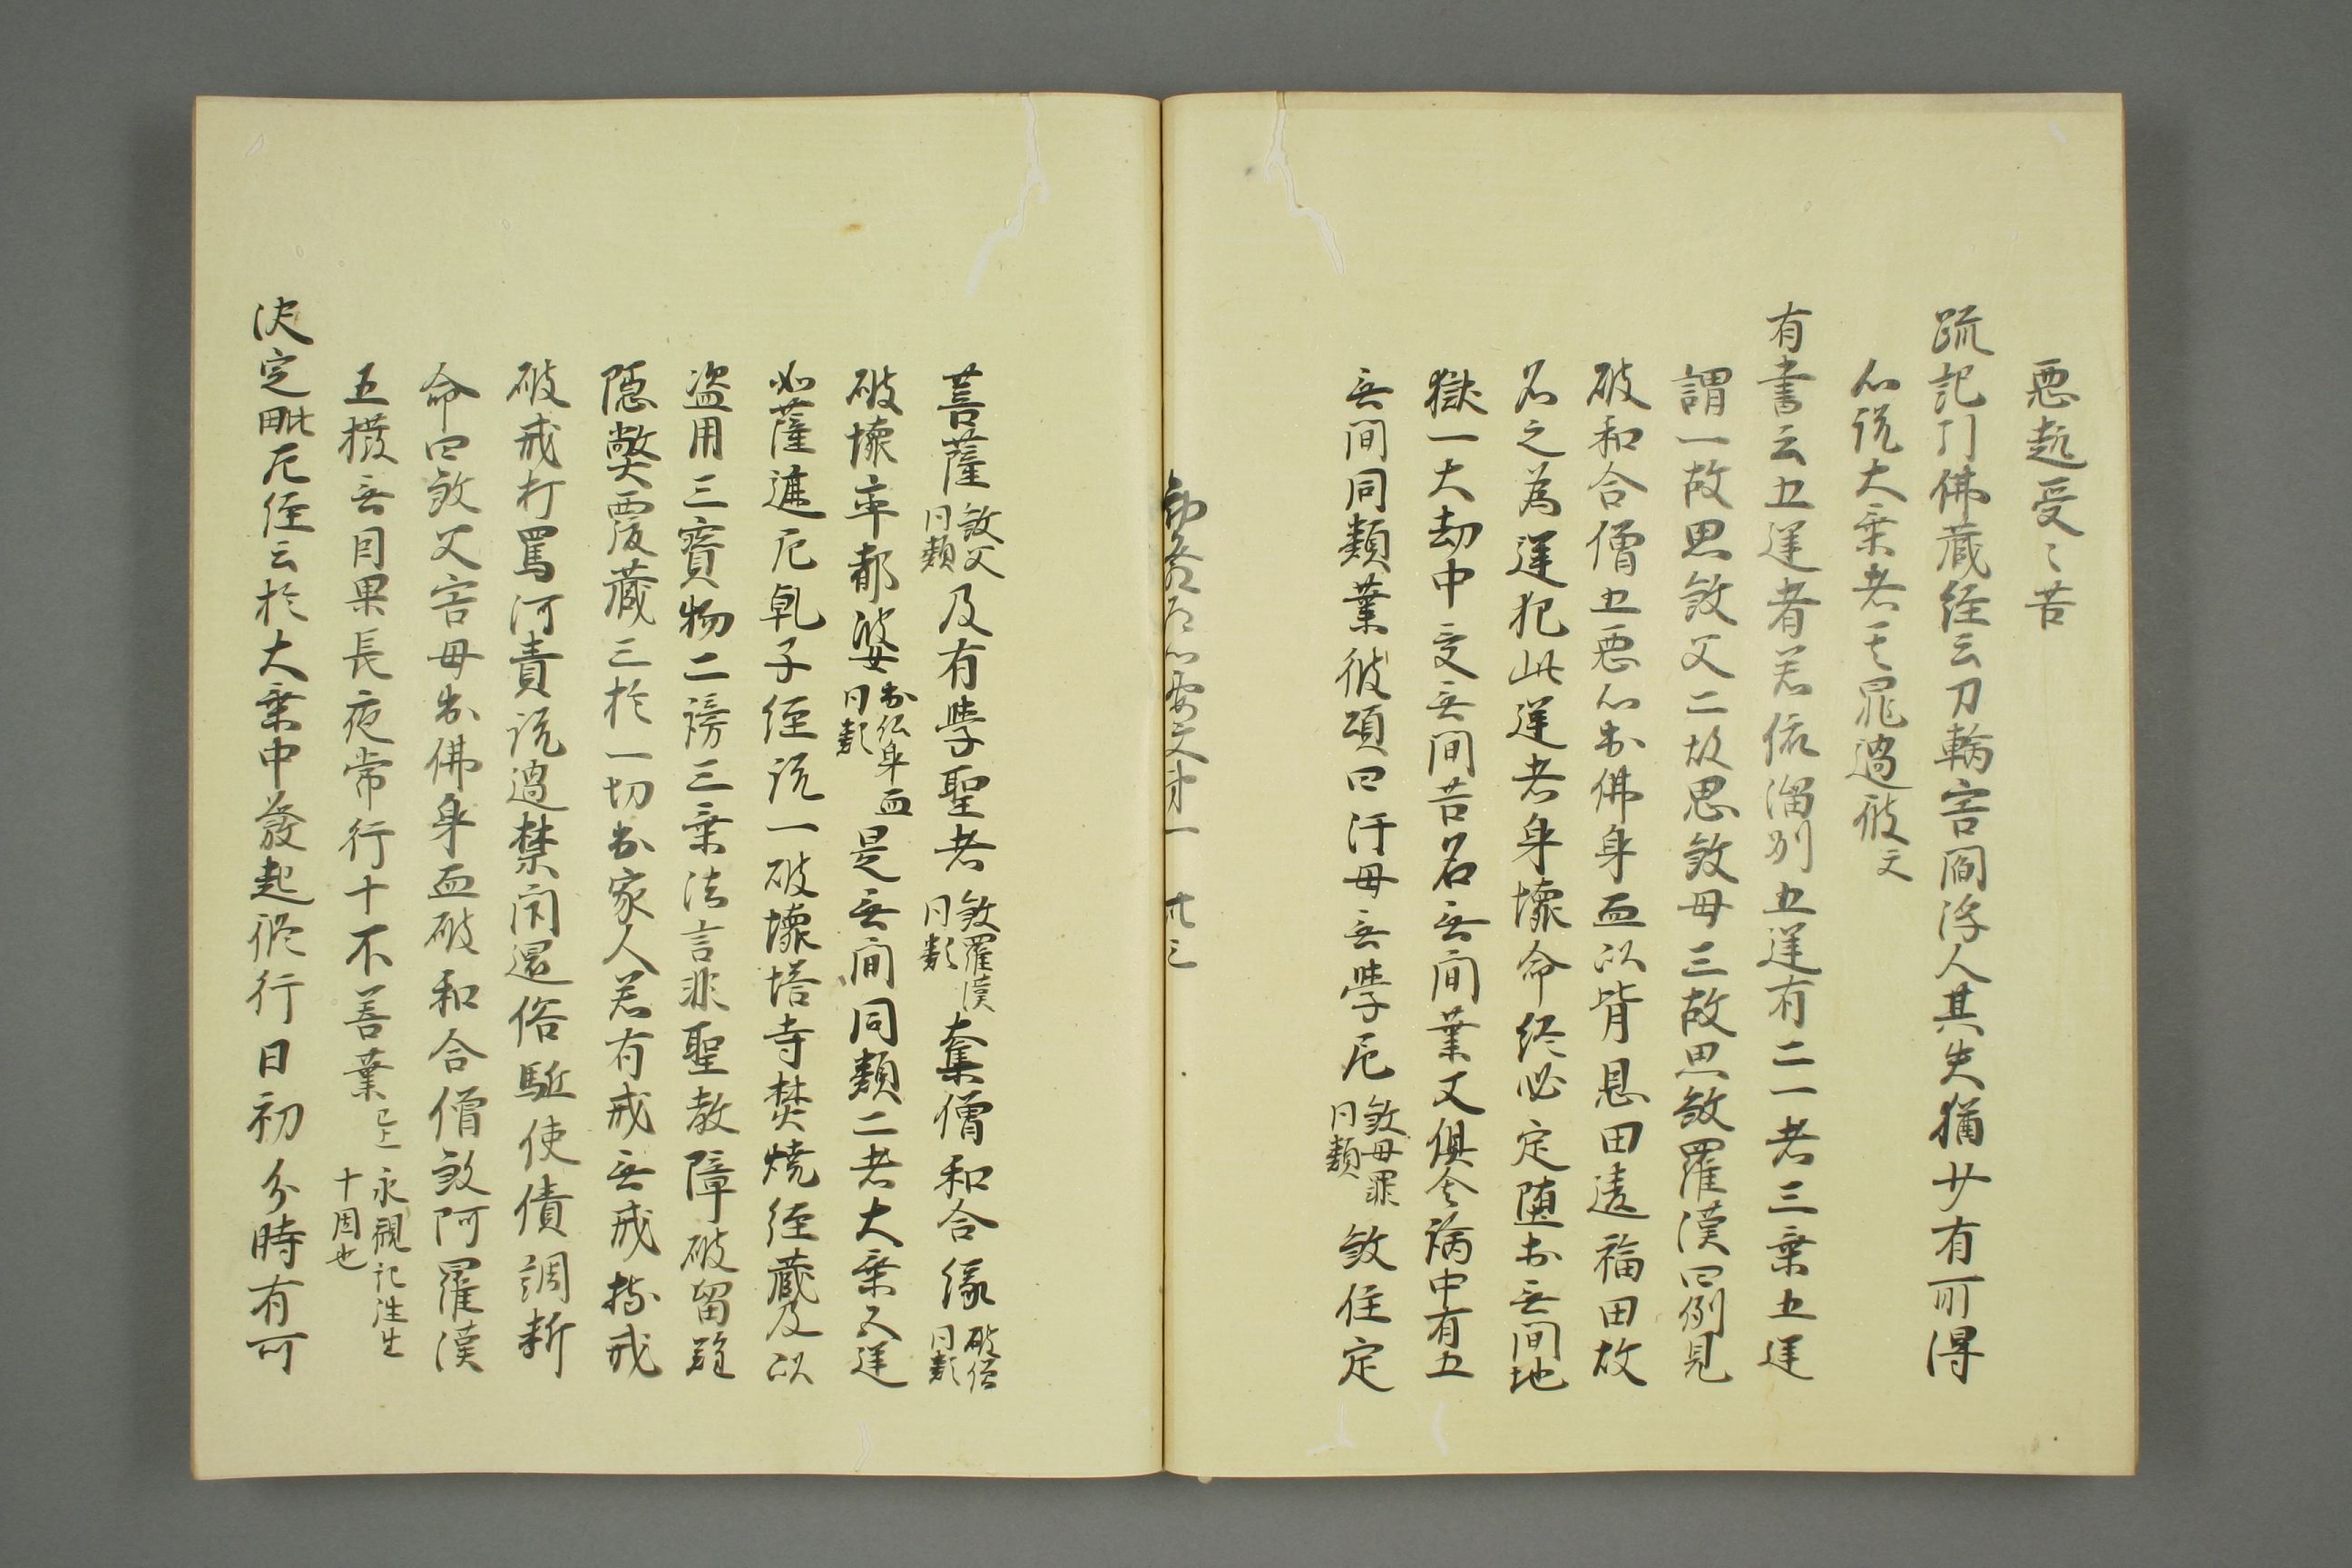 悪趣受〻苦
疏記引佛蔵経云刀輪害閻浮人其失猶少有所得
心説大乗者其罪過彼文
有書云五逆者若依淄州五逆有二一者三乗五逆
謂一故思敓父二故思敓母三故思敓羅漢四倒見
破和合僧五悪心出佛身血以背恩田違福田故
名之為逆犯此逆者身壊命終必定堕在無間地
獄一大劫中受無間苦名無間業文倶舎論中有五
無間同類業彼頌曰汗母無学尼敓母罪同類敓住定
菩薩敓父同類及有学聖者敓羅漢同類奪僧和合縁破僧同類
破壊率都婆出仏身血同類是無間同類二者大乗五逆
如薩遮尼乹子経説一破壊塔寺焚焼経蔵及以
盗用三寳物二謗三乗法言非聖教障破留難
隠弊覆蔵三於一切出家人若有戒無戒持戒
破戒打罵呵責説過禁閇還俗駈使債調断
命四敓父害母出佛身血破和合僧敓阿羅漢
五撥無因果長夜常行十不善業已上永観記注生十因也
決定毗尼経云於大乗中發起修行日初分時有可